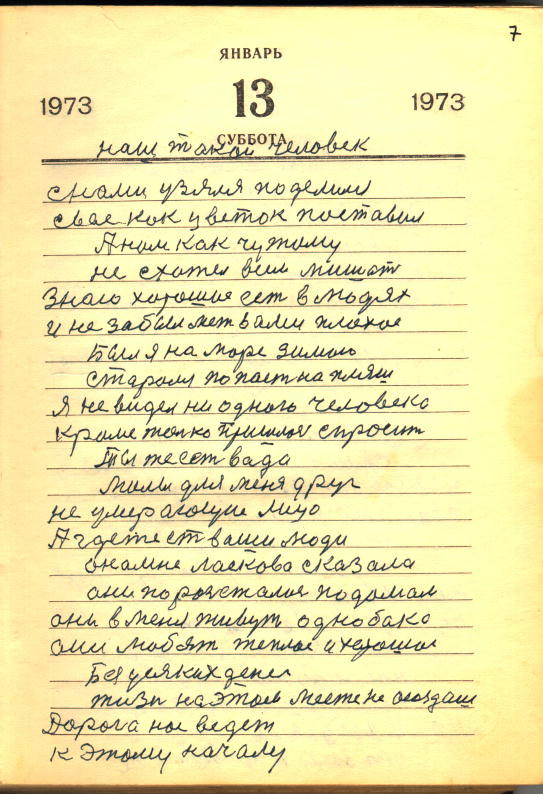 7
ЯНВАРЬ
1973 13 1973
СУББОТА
наш такой человек
снами узяля поделил
свае как цветок поставил
Анам как чужому
не схотел всем мишат
Знаю хорошое ест в людях
и не забыл плохое
Был я на море зимою
старался попаст на пляш
Я не видел ни одного человека
кроме толко спросит
Ты же ест вада
для меня друг
не умерающие лицо
А где же ест ваши люди
она мне ласкова сказала
они по домам
оны в меня живут однобако
они любят теплое и хорошое
Без усяких денег
жизн на этом месте не создаш
Дорога нас ведет
к этому началу